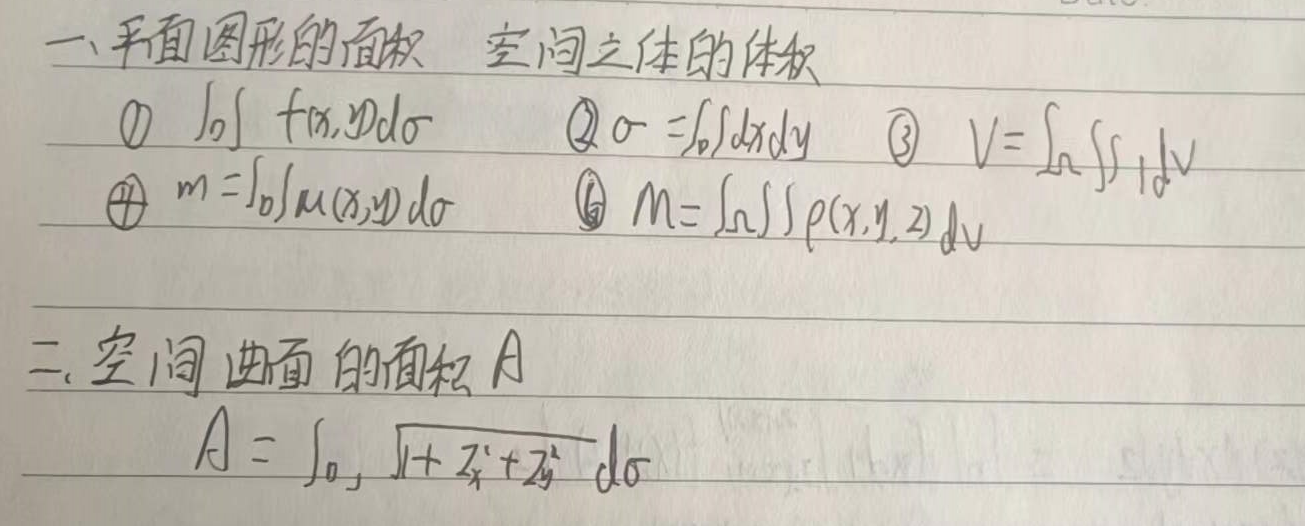 一、平面图形的面积 空间立体的体积
① ∫_D∫ f(x,y)dσ ② σ=∫_D∫dxdy ③ V=∫_Ω∫∫1dv
④ m=∫_D∫μ(x,y)dσ ⑤ M=∫_Ω∫∫ρ(x,y,z)dv
二、空间曲面的面积 A
A=∫_D∫√(1+Z_x²+Z_y²)dσ